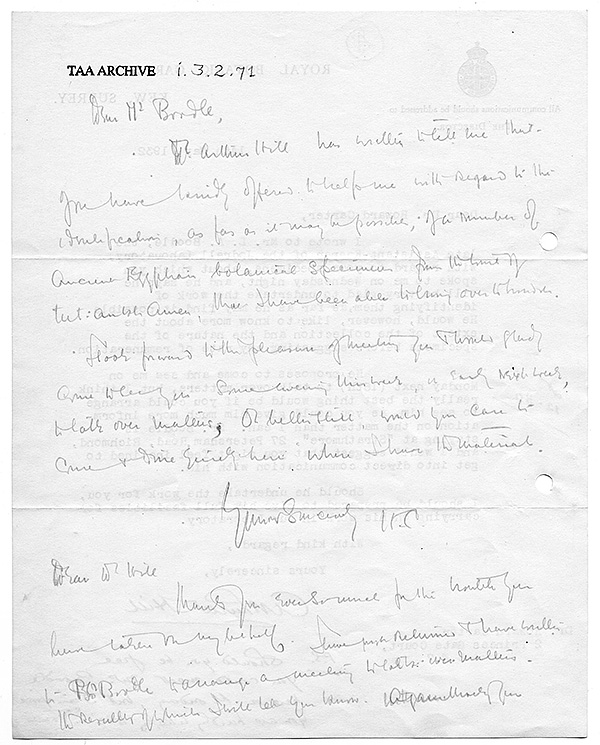 TAA ARCHIVE i.3.2.71
Dear Mr Boodle,
Arthur Hill has written to tell me that
you have kindly offered to help me with regard to the
identification, as far as it may be possible, of a number of
Ancient Egyptian botanical specimens from the tomb of
Tut-ankh-Amen that I have been able to bring over to London.
I look forward to the pleasure of meeting you & would gladly
come to see you some evening this week or early next week,
to talk over matters, Or better still would you care to
come & dine quietly here where I have the material.
Yours Sincerely H.C
Dear Dr Hill
Thank you ever so much for the trouble you
have taken on my behalf. I have just returned & have written
to Boodle to arrange a meeting to talk over matters.
the results of which I will let you know. you